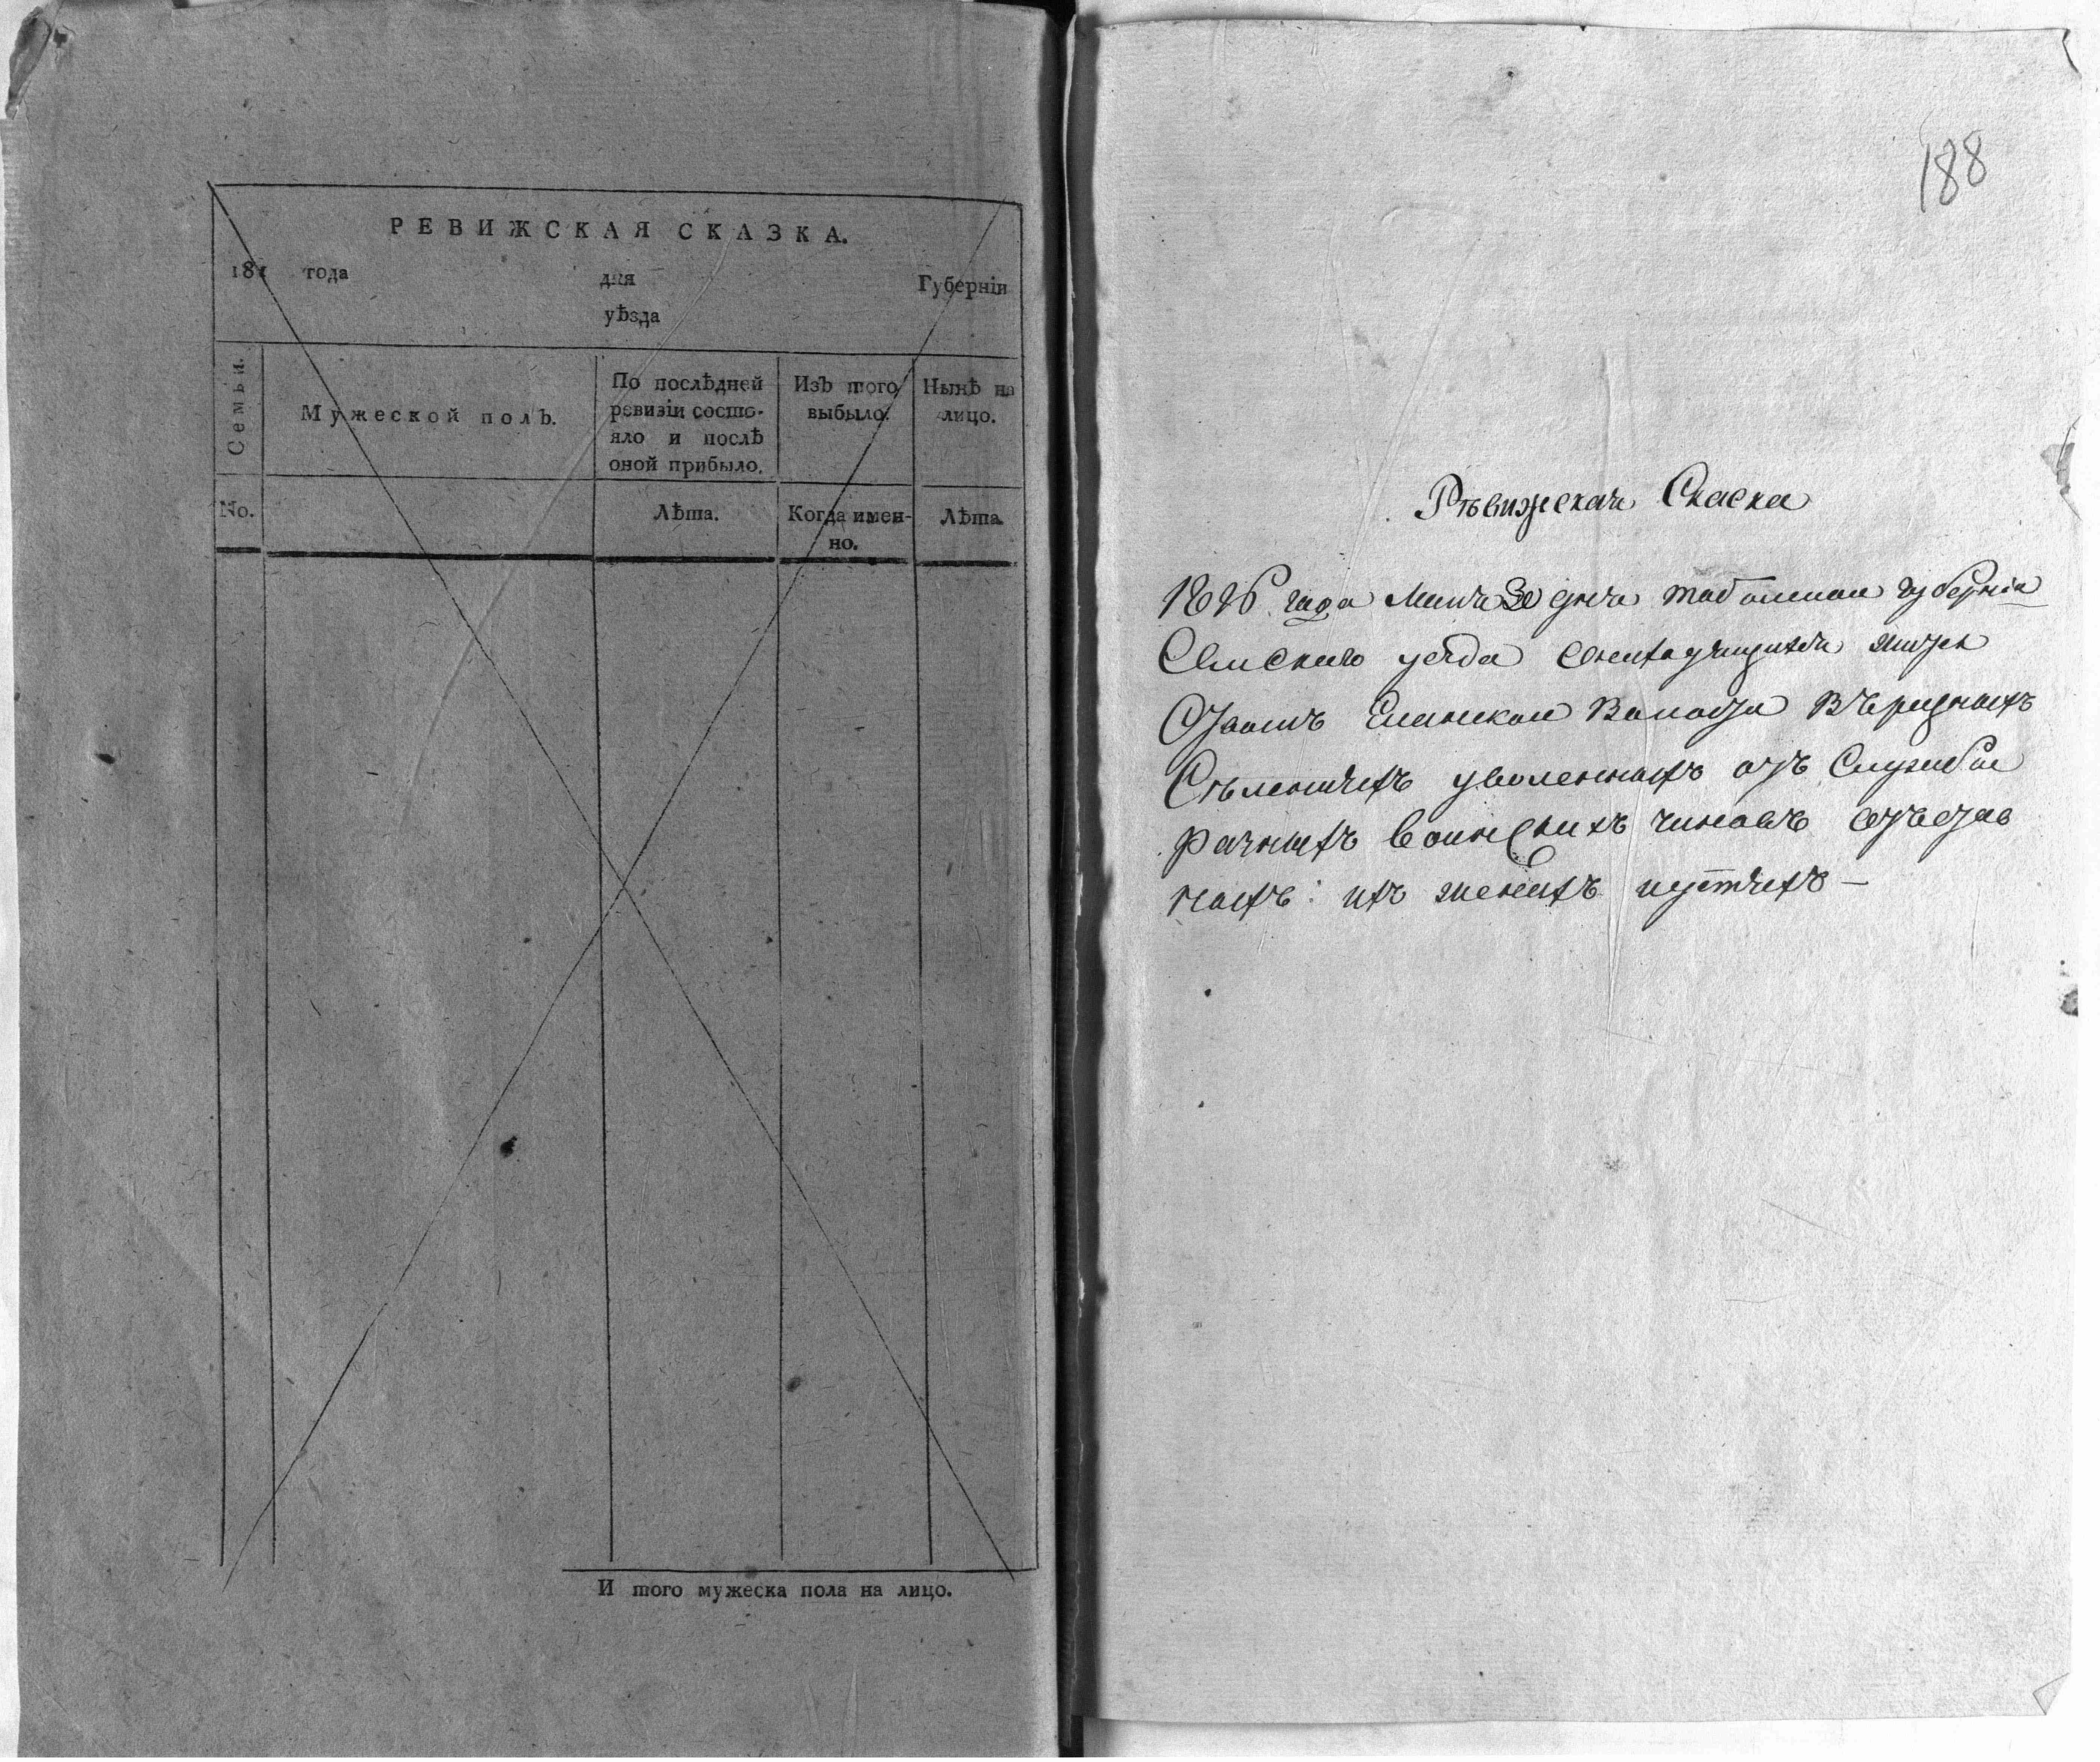 РЕВИЖСКАЯ СКАЗКА.
181 года дня Губерніи
уѣзда
Семьи.
Мужеской полъ.
По послѣдней
ревизіи состо-
яло и послѣ
оной прибыло.
Изъ того
выбыло.
Нынѣ на
лицо.
No.
Лѣта.
Когда имен-
но.
Лѣта.
И того мужеска пола на лицо.
188
Рѣвижская Скаска
1816 года Маия 30 дня тобольской губерніи
Омскаго уезда
Еланской Волости Вѣразныхъ
Сѣленияхъ уволенныхъ отъ Службы
разныхъ воинскихъ чиновъ
ныхъ: ихъ женахъ идѣтяхъ —